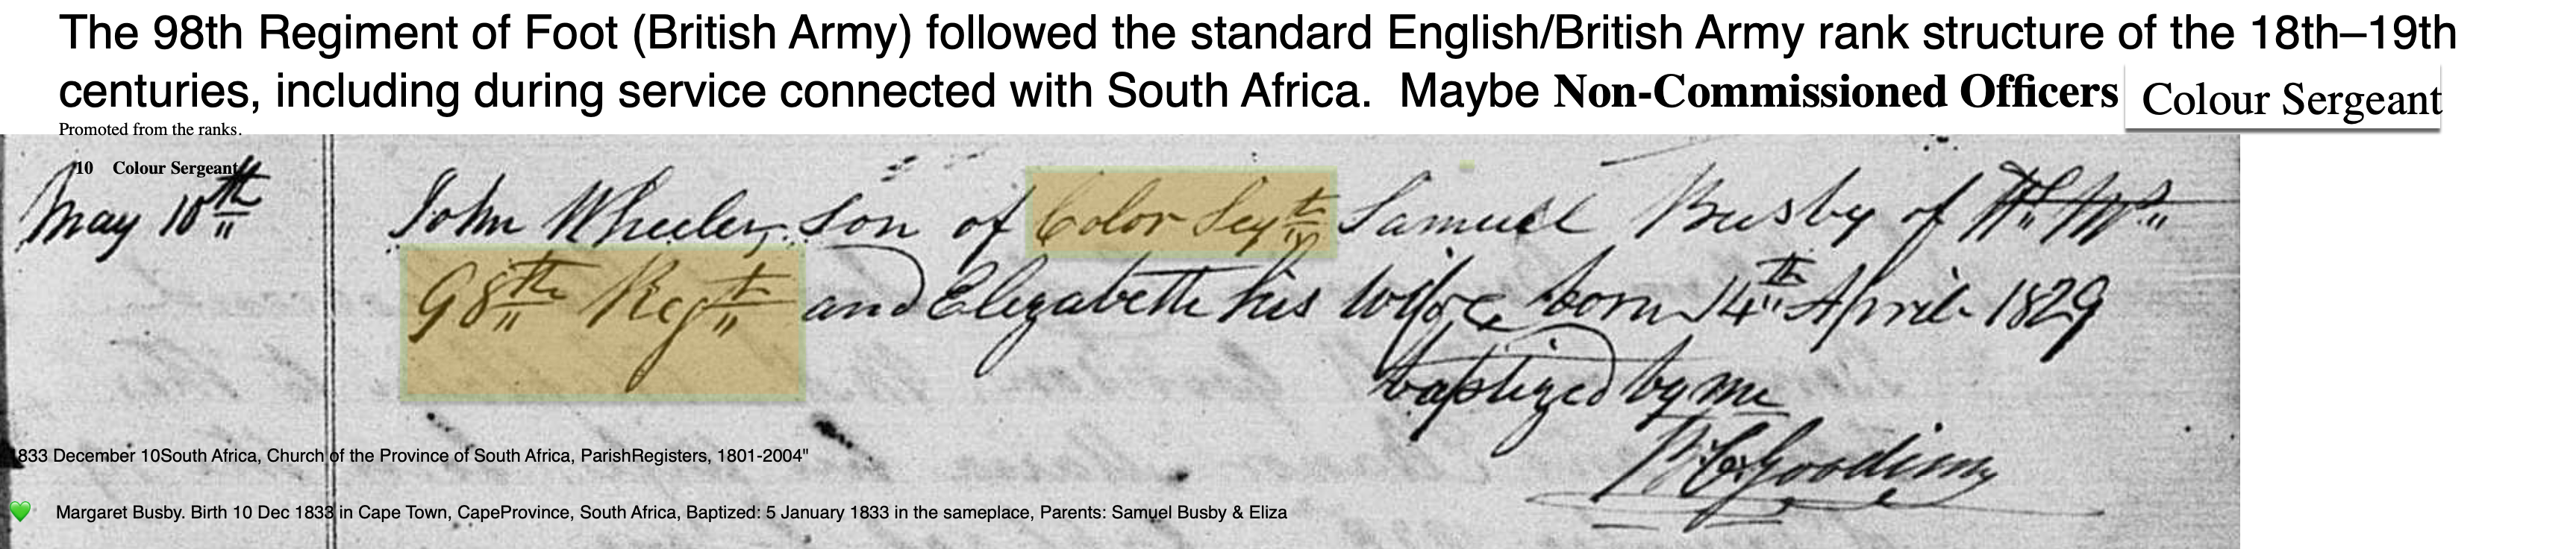 The 98th Regiment of Foot (British Army) followed the standard English/British Army rank structure of the 18th–19th
centuries, including during service connected with South Africa. Maybe Non-Commissioned Officers Colour Sergeant
Promoted from the ranks.
10 Colour Sergeant
May 10th John Wheeler, son of Color Sergt Samuel Busby of H. M's
98th Regt and Elizabeth his wife, born 14th April 1829
baptized by me
1833 December 10South Africa, Church of the Province of South Africa, ParishRegisters, 1801-2004"
💚 Margaret Busby. Birth 10 Dec 1833 in Cape Town, CapeProvince, South Africa, Baptized: 5 January 1833 in the sameplace, Parents: Samuel Busby & Eliza